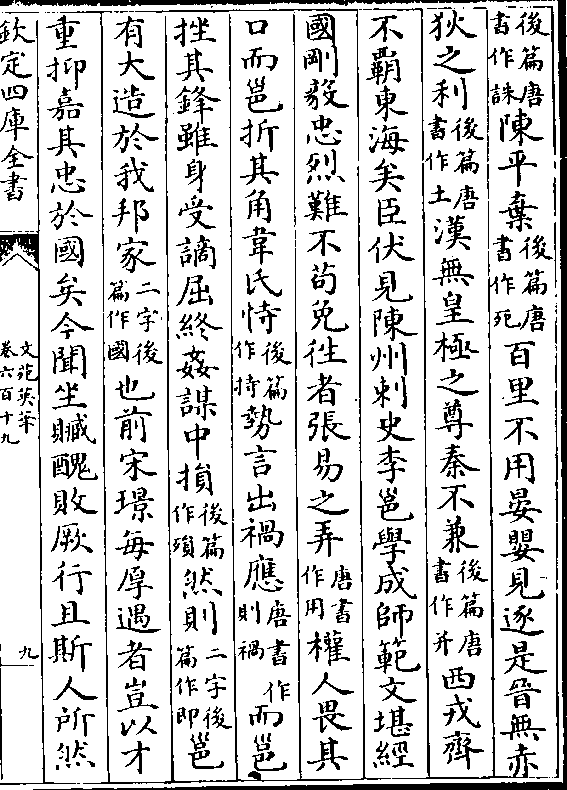 後篇唐書作誅陳平棄後篇唐書作死百里不用晏嬰見逐是晉無赤
狄之利後篇唐書作土漢無皇極之尊秦不兼後篇唐書作并西戎齊
不霸東海矣臣伏見陳州刺史李邕學成師範文堪經
國剛毅忠烈難不苟免往者張易之弄唐書作用權人畏其
口而邕折其角韋氏恃後篇作持勢言出禍應唐書作則禍而邕
挫其鋒雖身受謫屈終姦謀中損後篇作殞然則二字後篇作即邕
有大造於我邦家二字後篇作國也前宋璟每厚遇者豈以才
重抑嘉其忠於國矣今聞坐贓醜敗厥行且斯人所然
欽定四庫全書
文苑英華
卷六百十九
九